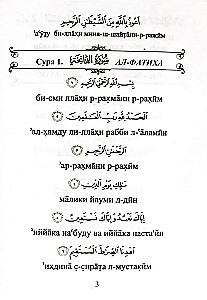 أَعُوذُ بِاللَّهِ مِنَ الشَّيْطَانِ الرَّجِيمِ
'а'ӯз̱у би-лля̄хи мина-ш-шайт̣а̄ни-р-раджӣм
Сура 1. سُورَةُ الْفَاتِحَةِ АЛ-ФА̄ТИХ̣А
بِسْمِ اللَّهِ الرَّحْمَٰنِ الرَّحِيمِ
би-сми лля̄хи р-рах̣ма̄ни р-рах̣ӣм
الْحَمْدُ لِلَّهِ رَبِّ الْعَالَمِينَ
'ал-х̣амду ли-лля̄хи рабби л-'а̄ламӣн
الرَّحْمَٰنِ الرَّحِيمِ
'ар-рах̣ма̄ни р-рах̣ӣм
مَالِكِ يَوْمِ الدِّينِ
ма̄лики йауми д-дӣн
إِيَّاكَ نَعْبُدُ وَإِيَّاكَ نَسْتَعِينُ
'иййа̄ка на'буду ва иййа̄ка наста'ӣн
اهْدِنَا الصِّرَاطَ الْمُسْتَقِيمَ
'ихдина̄ с̣-с̣ира̄т̣а л-мустак̣ӣм
3